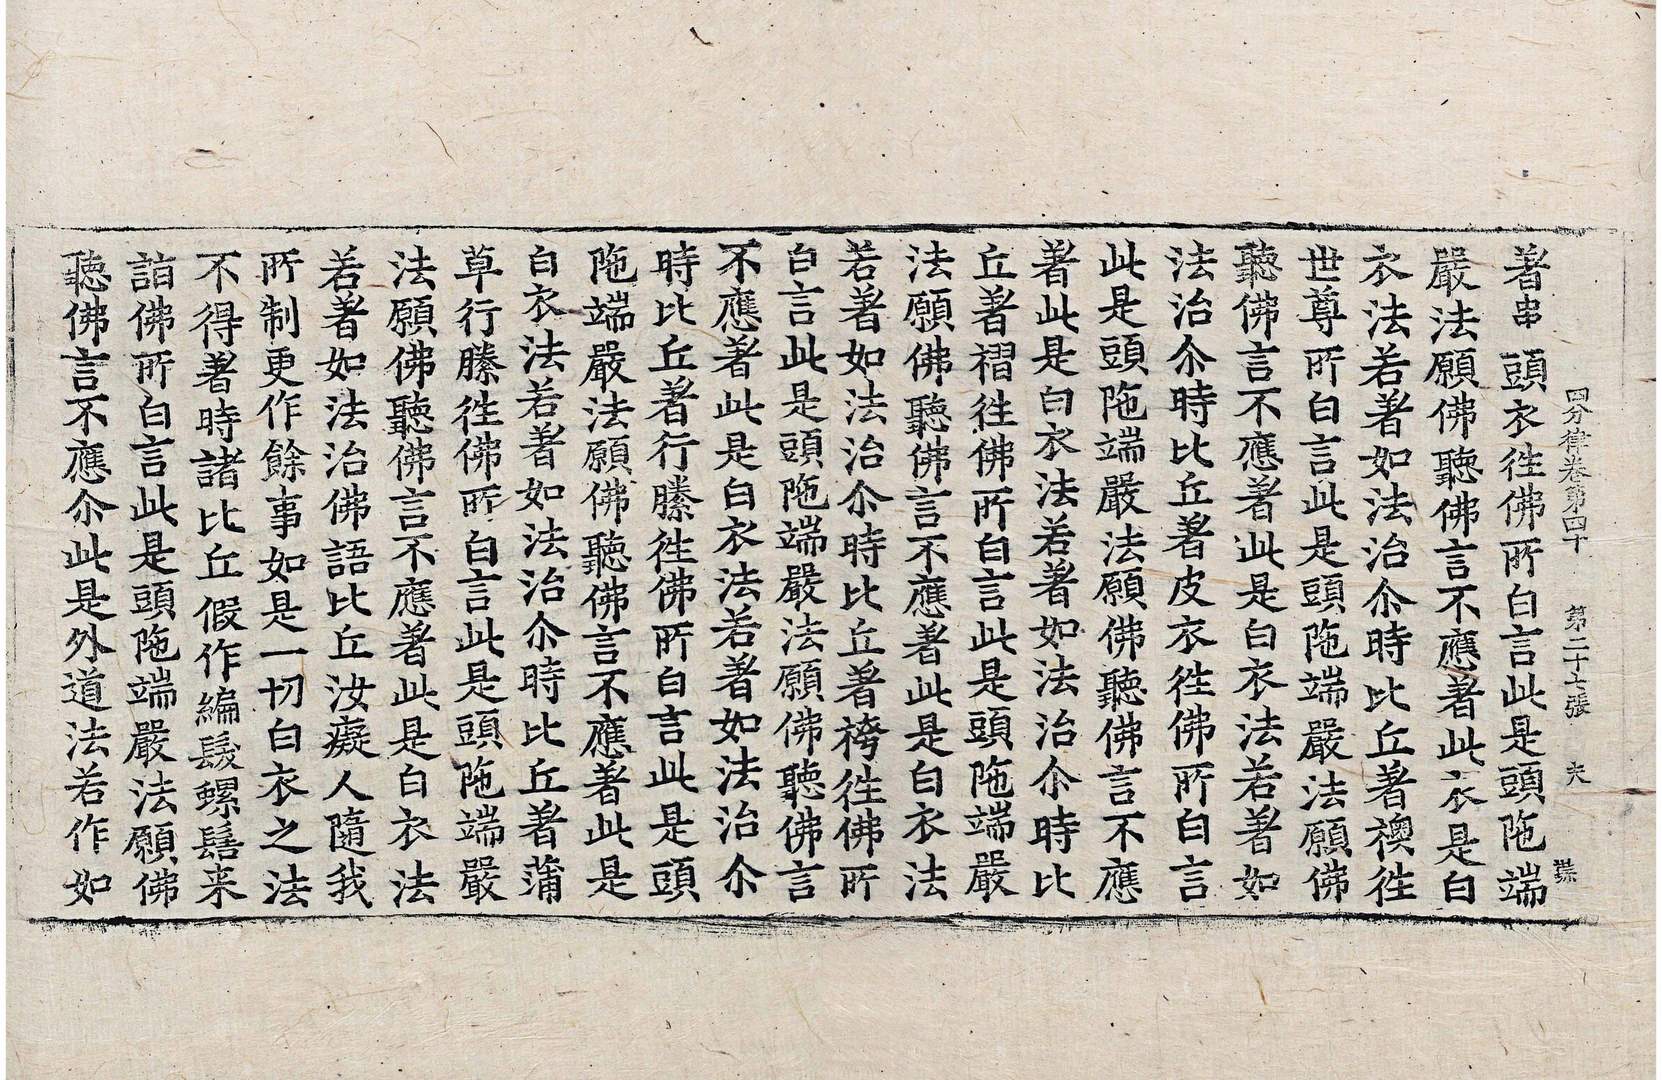 四分律卷第四十 第二十七張 夾
著串頭衣徃佛所白言此是頭陁端
嚴法願佛聽佛言不應著此衣是白
衣法若著如法治尒時比丘著襖徃
世尊所白言此是頭陁端嚴法願佛
聽佛言不應著此是白衣法若著如
法治尒時比丘著皮衣徃佛所白言
此是頭陁端嚴法願佛聽佛言不應
著此是白衣法若著如法治尒時比
丘著褶徃佛所白言此是頭陁端嚴
法願佛聽佛言不應著此是白衣法
若著如法治尒時比丘著袴徃佛所
白言此是頭陁端嚴法願佛聽佛言
不應著此是白衣法若著如法治尒
時比丘著行縢徃佛所白言此是頭
陁端嚴法願佛聽佛言不應著此是
白衣法若著如法治尒時比丘著蒲
草行縢徃佛所白言此是頭陁端嚴
法願佛聽佛言不應著此是白衣法
若著如法治佛語比丘汝癡人隨我
所制更作餘事如是一切白衣之法
不得著時諸比丘假作編髮螺髻来
詣佛所白言此是頭陁端嚴法願佛
聽佛言不應尒此是外道法若作如